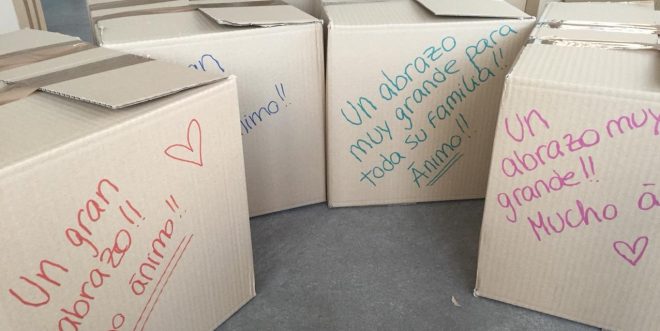 Un gran
abrazo!!
ánimo!!
Un abrazo
muy grande para
toda su familia!!
Ánimo!!
Un
abrazo muy
grande!!
Mucho